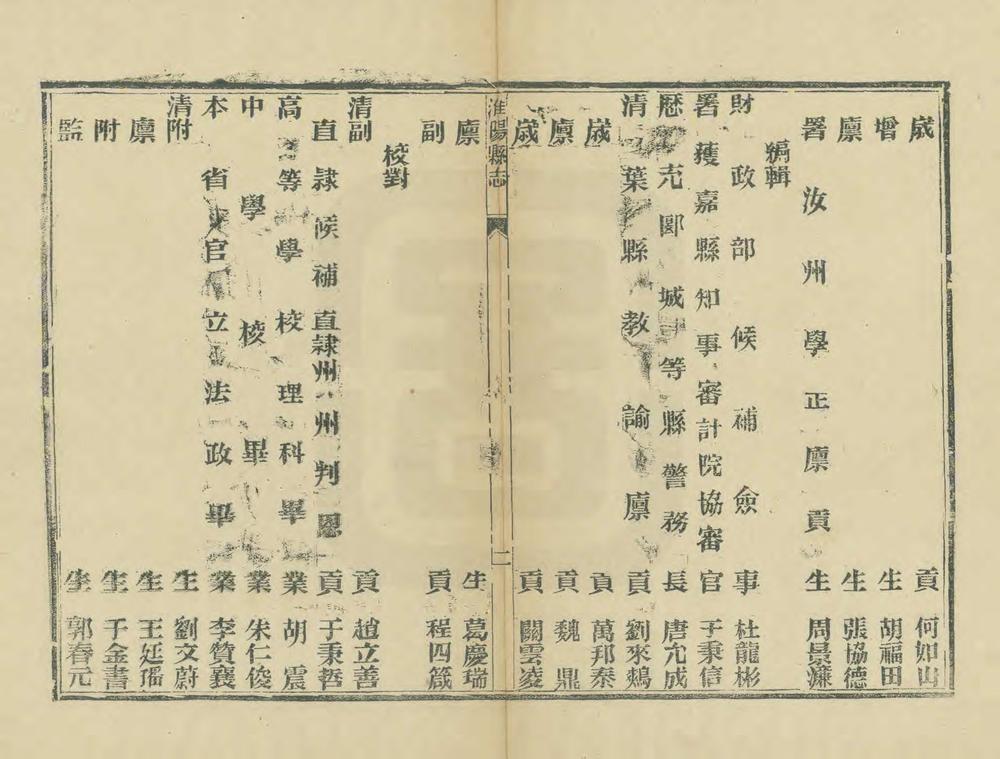 歲貢何如山
增生胡福田
廩生張協德
署汝州學正廩貢生周景濂
編輯
財政部候補僉事杜龍彬
署獲嘉縣知事審計院協審官于秉信
歷充郾城等縣警務長唐允成
清葉縣教諭廩貢劉來鵷
歲貢萬邦泰
廩貢魏鼎
歲貢關雲凌
淮陽縣志
一
廩生葛慶瑞
副貢程四箴
校對
清副貢趙立善
直隸候補直隸州州判恩貢于秉哲
高等學校理科畢業胡震
中學校畢業朱仁俊
本省官立法政畢業李贊襄
清附生劉文蔚
廩生王延瑤
附生于金書
監生郭春元